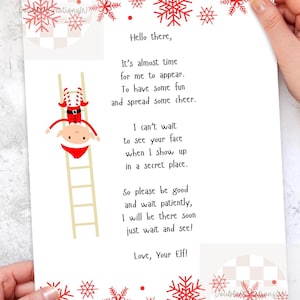 Hello there,
It's almost time
for me to appear.
To have some fun
and spread some cheer.
I can't wait
to see your face
when I show up
in a secret place.
So please be good
and wait patiently,
I will be there soon
just wait and see!
Love, Your Elf!